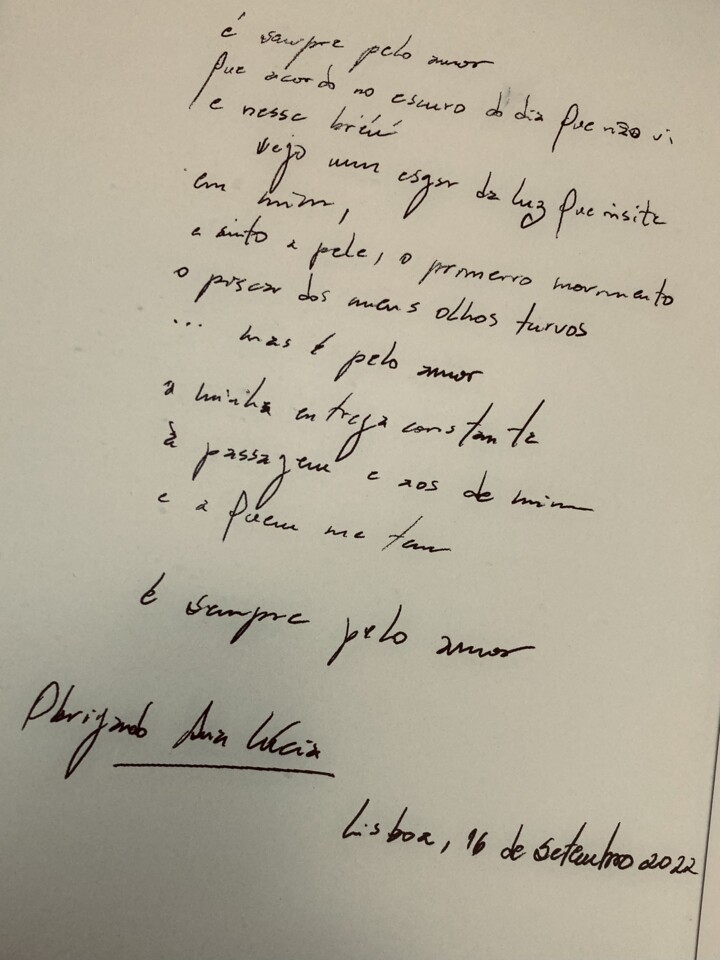 é sempre pelo amor
que acordo no escuro do dia que não vi
e nesse breu
vejo um esgar da luz que insiste
em mim,
e sinto a pele, o primeiro movimento
o piscar dos meus olhos turvos
... mas é pelo amor
a minha entrega constante
à passagem e aos de mim
e a quem me tem
é sempre pelo amor
Obrigado Ana Lúcia
Lisboa, 16 de setembro 2022